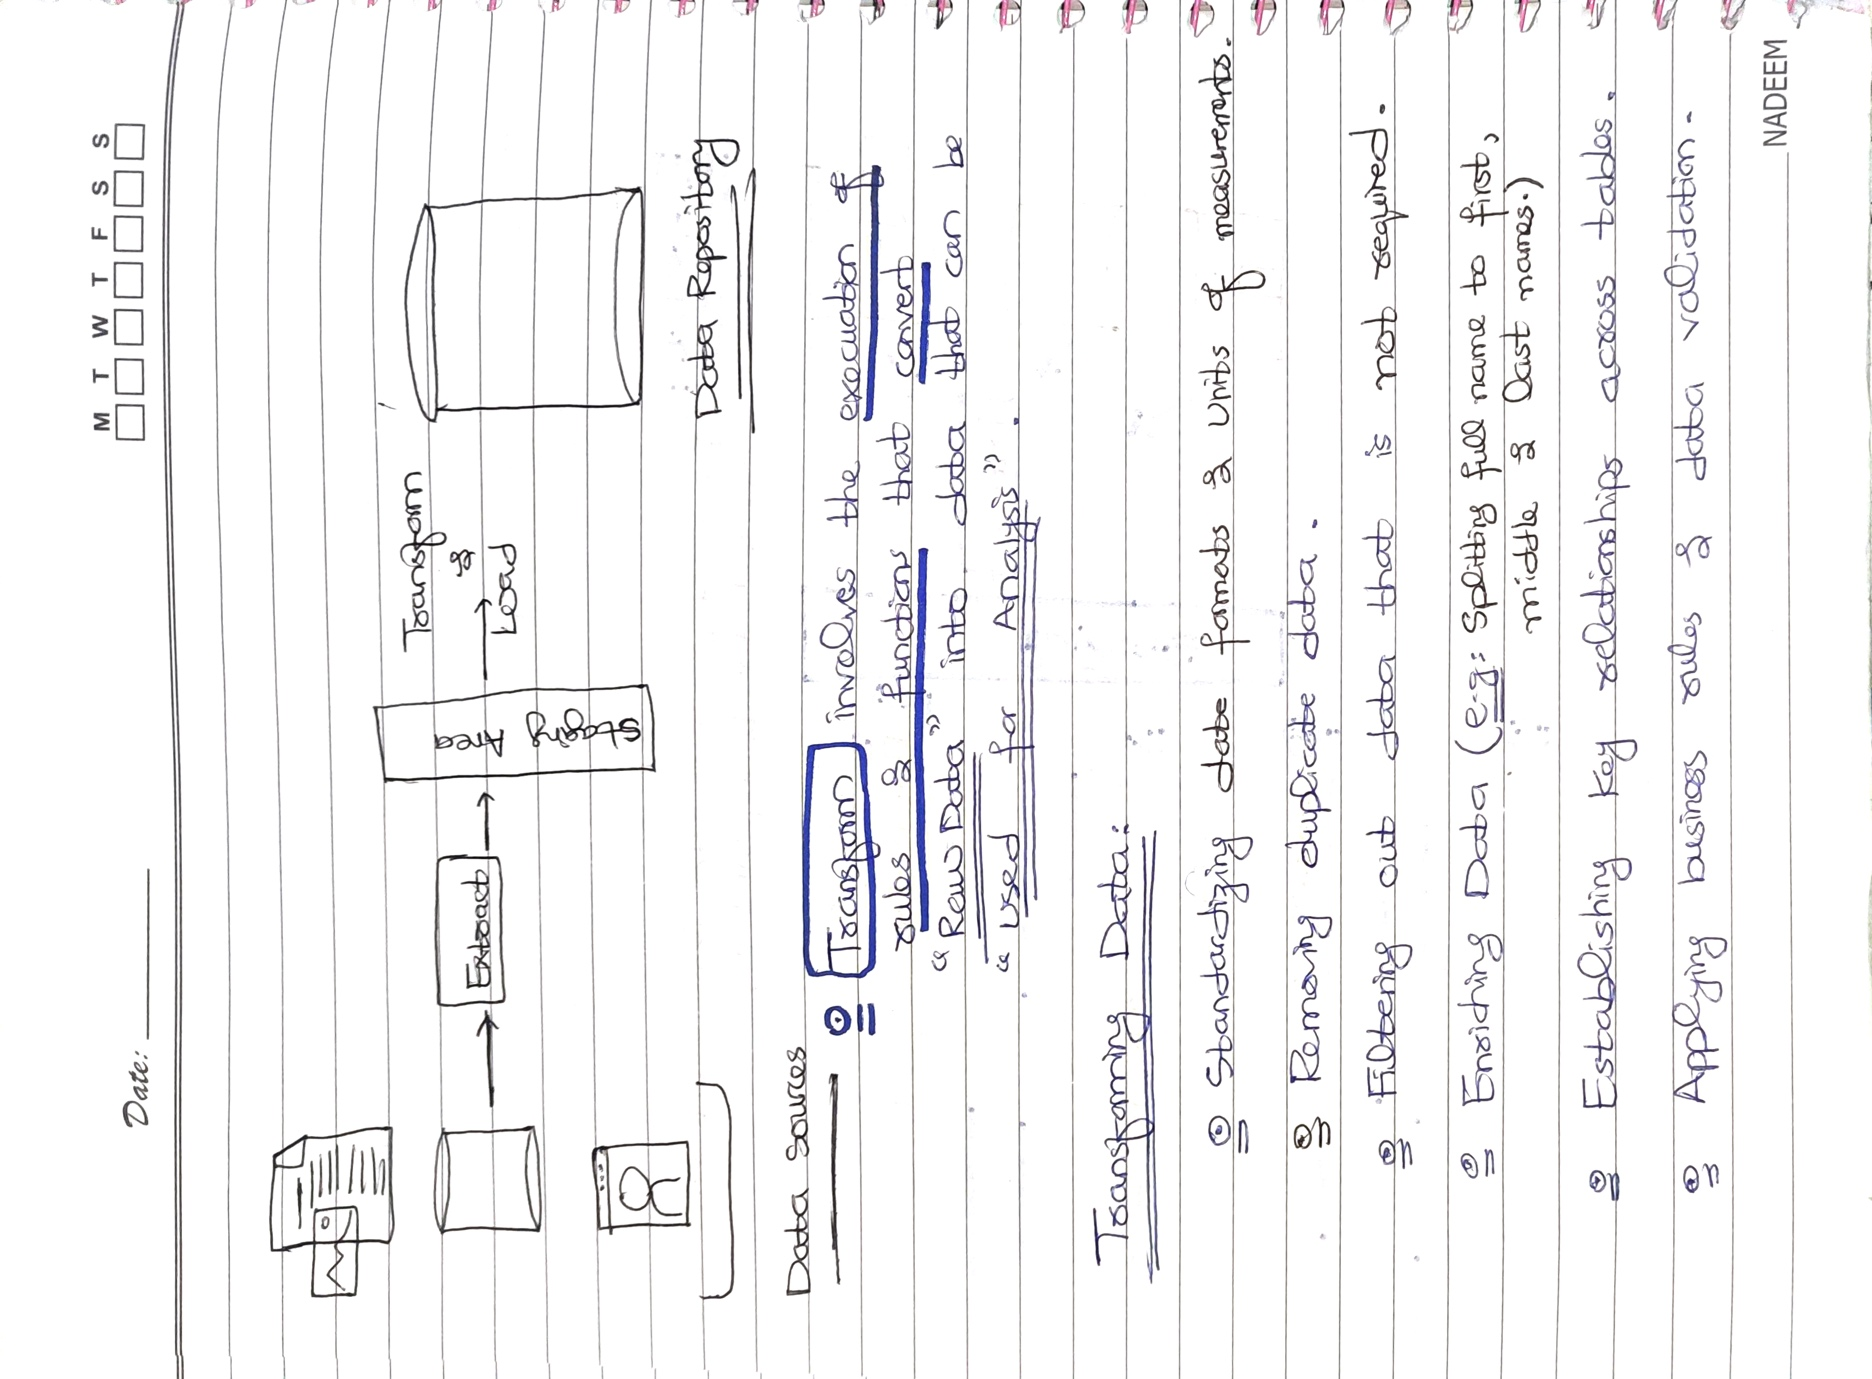 Date:
M T W T F S S
Extract
Staging
Area
Transform
&
Load
Data Repository
Data Sources
Transform involves the execution of
rules & functions that convert
"Raw Data" into data that can be
"used for Analysis".
Transforming Data:
Standardizing date formats & Units of measurements.
Removing duplicate data.
Filtering out data that is not required.
Enriching Data (e.g: Splitting full name to first,
middle & last names.)
Establishing Key relationships across tables.
Applying business rules & data validation.
NADEEM